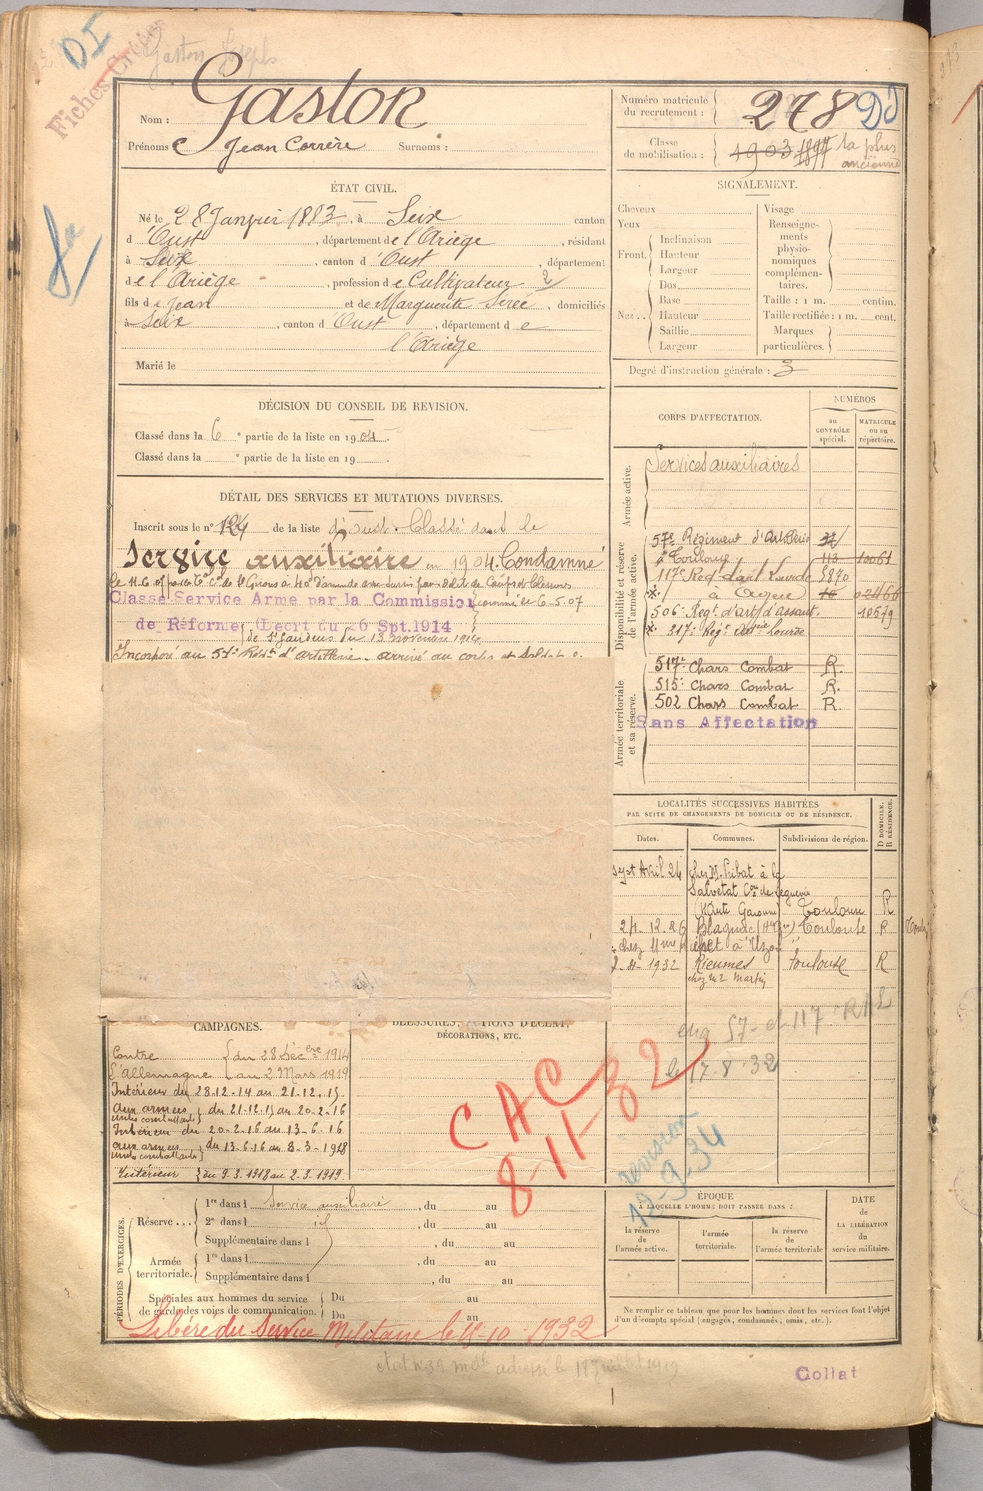 DI
Fiches Croix
Gaston Joseph
Nom : Gaston
Prénoms : Jean Corrère Surnoms :
Numéro matricule du recrutement : 278 DI
Classe de mobilisation : 1903 1897 la plus ancienne
8a
ÉTAT CIVIL.
Né le 28 Janvier 1883, à Seix canton
d'Oust, département de l'Ariège, résidant
à Seix, canton d'Oust, département
de l'Ariège, profession de Cultivateur 2
fils de Jean et de Marguerite Serée, domiciliés
à Seix, canton d'Oust, département de
l'Ariège
Marié le
SIGNALEMENT.
Cheveux
Yeux
Front. Inclinaison
Hauteur
Largeur
Nez .. Dos
Base
Hauteur
Saillie
Largeur
Visage
Renseignements physionomiques complémentaires.
Taille : 1 m. centim.
Taille rectifiée : 1 m. cent.
Marques particulières.
Degré d'instruction générale : 3
DÉCISION DU CONSEIL DE REVISION.
Classé dans la 6e partie de la liste en 1904.
Classé dans la e partie de la liste en 19 .
DÉTAIL DES SERVICES ET MUTATIONS DIVERSES.
Inscrit sous le n° 124 de la liste d'Oust. Classé dans le
Service auxiliaire en 1904. Condamné
Classé Service Armé par la Commission
de Réforme (Decrt du 26 Spt.1914
de St Gaudens du 13 novembre 1914
Incorporé au 57e Régt d'Artillerie. arrivé au corps et soldat
CORPS D'AFFECTATION.
NUMÉROS
au CONTRÔLE spécial.
MATRICULE ou au répertoire.
Armée active.
Services auxiliaires
Disponibilité et réserve de l'armée active.
57e Régiment d'Artillerie
à Toulouse 113 10061
117e Reg' d'art Lourde 5870
506e Regt d'art d'assaut. 10579
317e Regt Artie Lourde
Armée territoriale et sa réserve.
517e Chars Combat R.
515e Chars Combat R.
502 Chars Combat R.
Sans Affectation
LOCALITÉS SUCCESSIVES HABITÉES
PAR SUITE DE CHANGEMENTS DE DOMICILE OU DE RÉSIDENCE.
Dates. Communes. Subdivisions de région.
D DOMICILE. R RÉSIDENCE.
Avril 24 chez M. Pibat à la
Salvetat
(Haute Garonne) Toulouse R
24.12.26 Blagnac Toulouse R
4-1932 Rieumes Toulouse R
chez Mr Martin
le 17.8.32
CAMPAGNES.
Contre l'Allemagne du 28 Décbre 1914
au 2 Mars 1919
Intérieur du 28.12.14 au 21.12.15
Aux armées du 21.12.15 au 20.2.16
Intérieur du 20-2-16 au 13-6-16
aux armées du 13-6-16 au 8-3-1918
Intérieur du 9.3.1918 au 2.3.1919
BLESSURES, ACTIONS D'ÉCLAT, DÉCORATIONS, ETC.
CAC
8-11-32
révision
12-9-34
PÉRIODES D'EXERCICES.
Réserve ... 1re dans l Service auxiliaire, du au
2e dans l id, du au
Supplémentaire dans l , du au
Armée territoriale. 1re dans l , du au
Supplémentaire dans l , du au
Spéciales aux hommes du service de garde des voies de communication. Du au
Du au
ÉPOQUE
À LAQUELLE L'HOMME DOIT PASSER DANS :
la réserve de l'armée active.
l'armée territoriale.
la réserve de l'armée territoriale
DATE DE LA LIBÉRATION du service militaire.
Ne remplir ce tableau que pour les hommes dont les services font l'objet
d'un décompte spécial (engagés, condamnés, omis, etc.).
Libéré du Service Militaire le 15-10-1932
adressé le 11 Juillet 1919
Collat